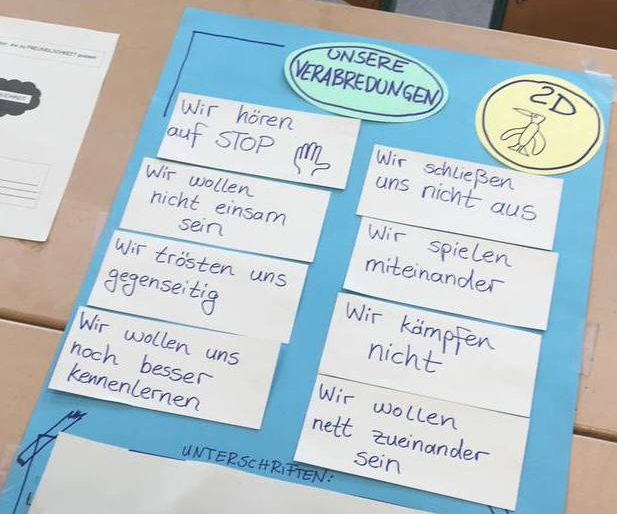 UNSERE
VERABREDUNGEN
2D
Wir hören
auf STOP
Wir wollen
nicht einsam
sein
Wir trösten uns
gegenseitig
Wir wollen uns
noch besser
kennenlernen
Wir schließen
uns nicht aus
Wir spielen
miteinander
Wir kämpfen
nicht
Wir wollen
nett zueinander
sein
UNTERSCHRIFTEN: